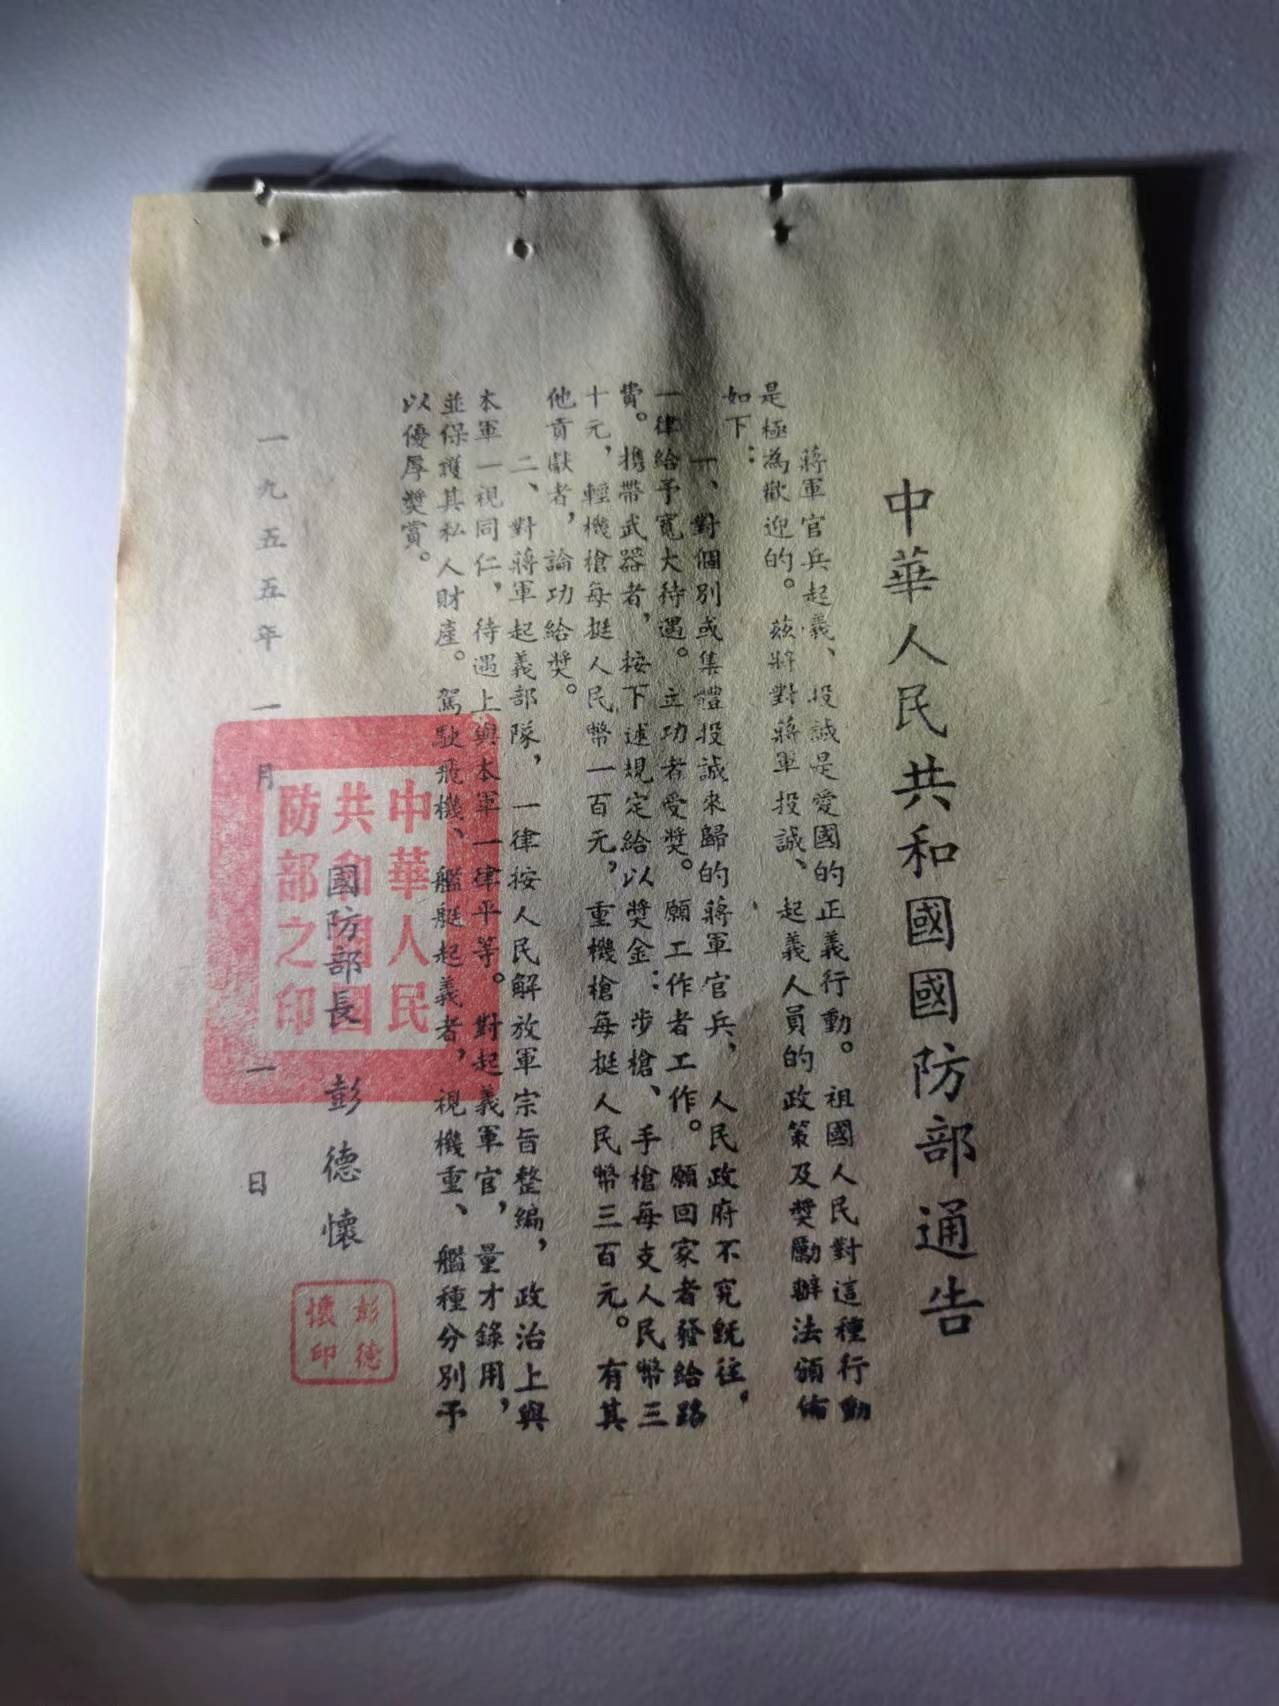 中華人民共和國國防部通告
蔣軍官兵起義、投誠是愛國的正義行動。祖國人民對這種行動
是極為歡迎的。茲將對蔣軍投誠、起義人員的政策及獎勵辦法頒佈
如下：
一、對個別或集體投誠來歸的蔣軍官兵，人民政府不究既往，
一律給予寬大待遇。立功者受獎。願工作者工作。願回家者發給路
費。携帶武器者，按下述規定給以獎金：步槍、手槍每支人民幣三
十元，輕機槍每挺人民幣一百元，重機槍每挺人民幣三百元。有其
他貢獻者，論功給獎。
二、對蔣軍起義部隊，一律按人民解放軍宗旨整編，政治上與
本軍一視同仁，待遇上與本軍一律平等。對起義軍官，量才錄用，
並保護其私人財產。駕駛飛機、艦艇起義者，視機重、艦種分別予
以優厚獎賞。
國防部長 彭德懷
彭德
懷印
中華人民
共和國國
防部之印
一九五五年一月一日